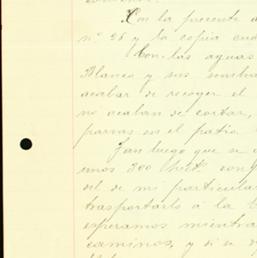 Con la presente a
nº 36 y la copia cua
Con las aguas
Blanco y sus contra
acabar de recoger el
no acaban de cortar,
parras en el patio
Tan luego que se
unos 200 hect. con
del de mi particular
trasportarlo á la
esperamos mientra
caminos, y si se